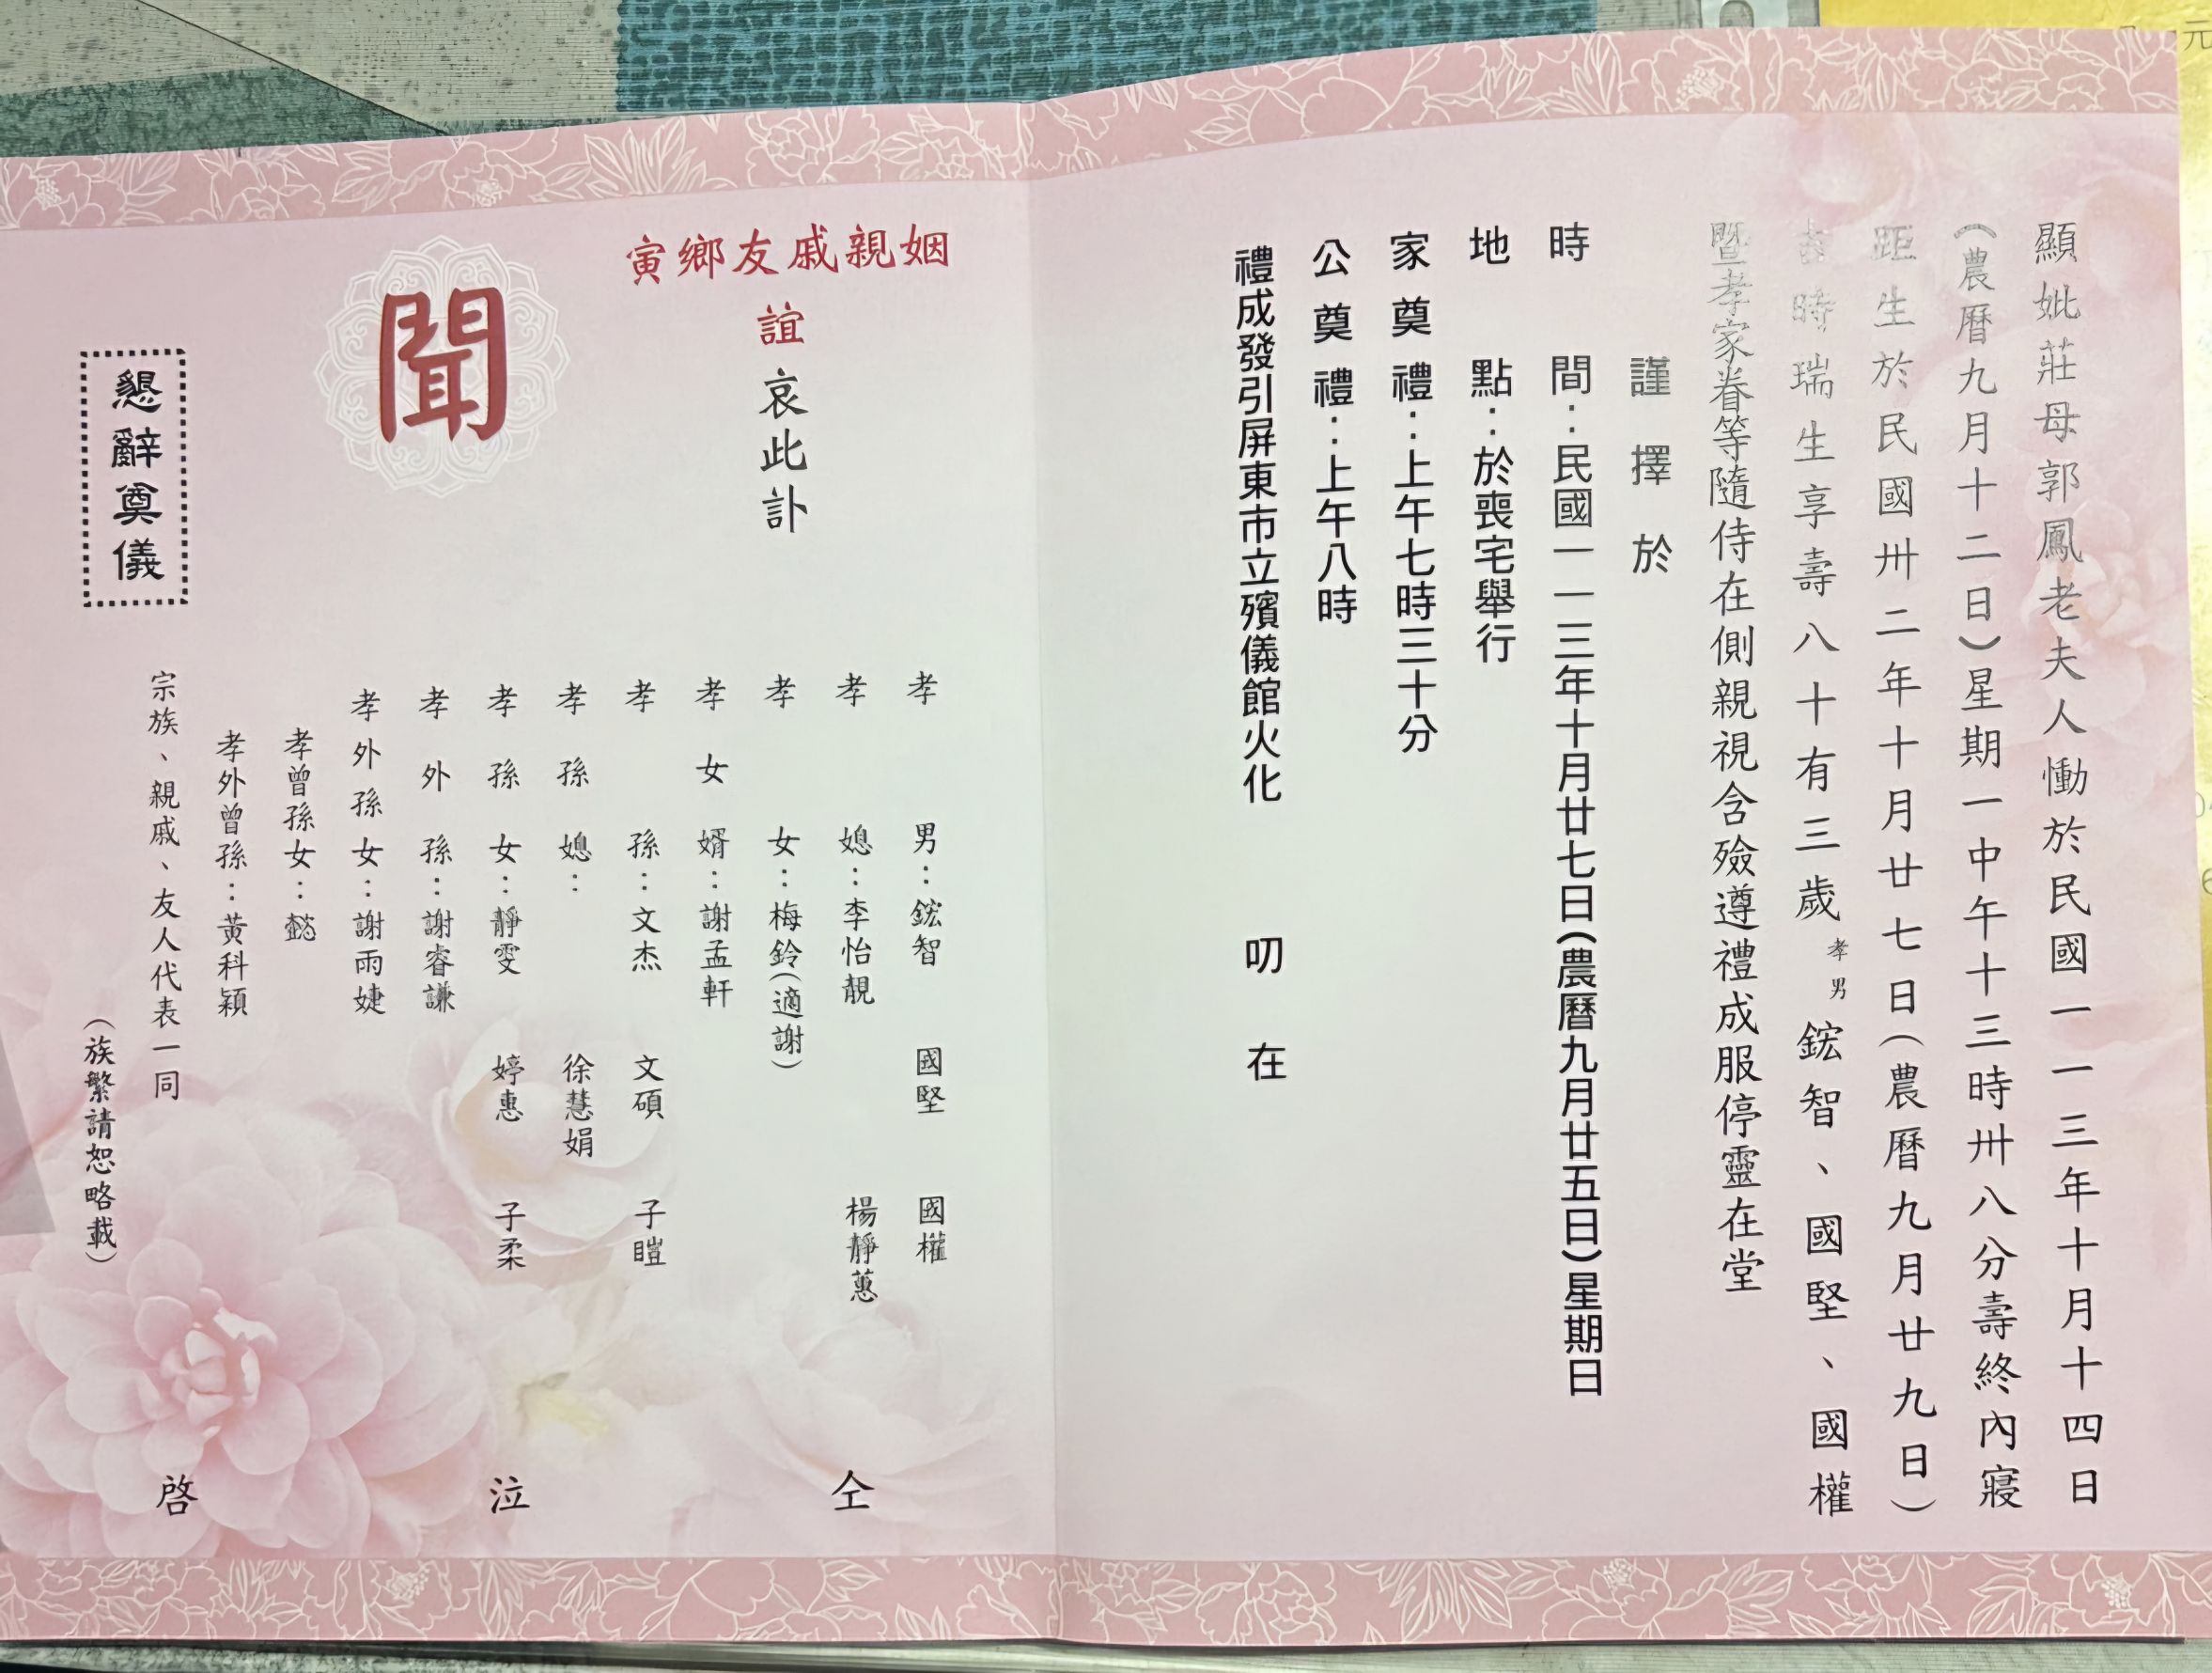 顯妣莊母郭鳳老夫人慟於民國一一三年十月十四日
(農曆九月十二日)星期一中午十三時卅八分壽終內寢
距生於民國卅二年十月廿七日(農曆九月廿九日)
吉時瑞生享壽八十有三歲 孝男 鋐智、國堅、國權
暨孝家眷等隨侍在側親視含殮遵禮成服停靈在堂
謹擇於
時間:民國一一三年十月廿七日(農曆九月廿五日)星期日
地點:於喪宅舉行
家奠禮:上午七時三十分
公奠禮:上午八時
禮成發引屏東市立殯儀館火化 叨在
姻親戚友鄉寅
誼哀此訃
聞
孝男:鋐智 國堅 國權
孝媳:李怡靚 楊靜蕙
孝女:梅鈴(適謝)
孝女婿:謝孟軒
孝孫:文杰 文碩 子暟
孝孫媳: 徐慧娟
孝孫女:靜雯 婷惠 子柔
孝外孫:謝睿謙
孝外孫女:謝雨婕
孝曾孫女:懿
孝外曾孫:黃科穎
宗族、親戚、友人代表一同
(族繁請恕略載)
仝泣啓
懇辭奠儀